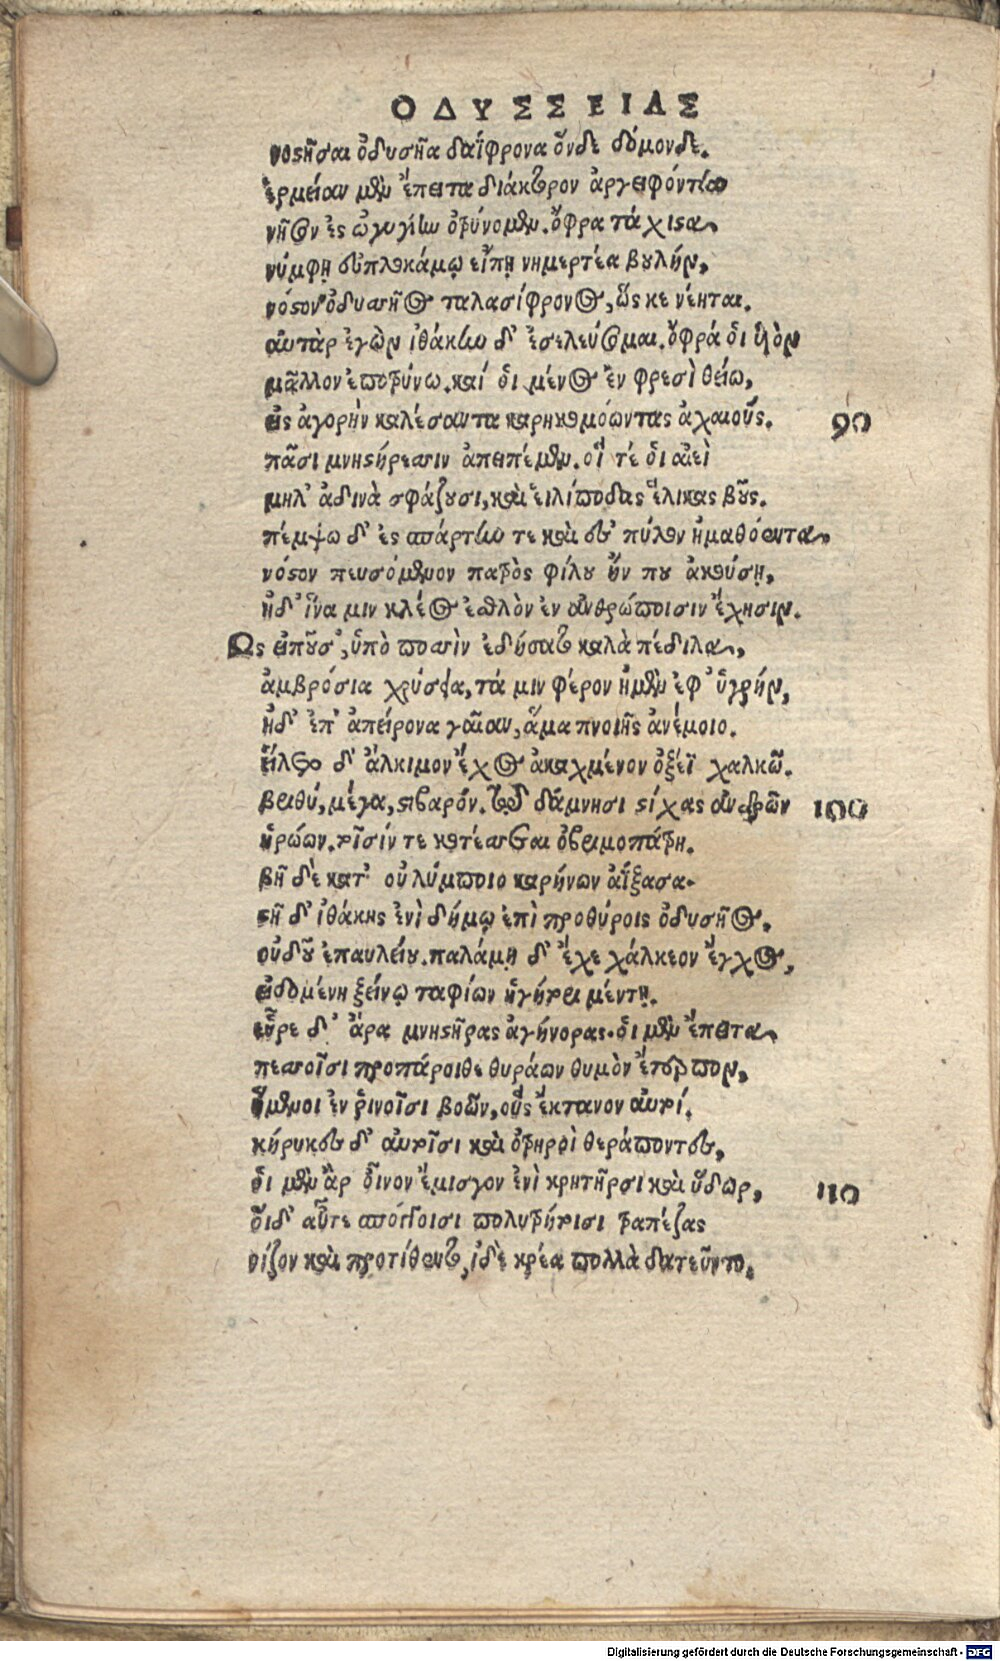 ΟΔΥΣΣΕΙΑΣ
νοστῆσαι ὀδυσῆα δαΐφρονα ὅνδε δόμονδε.
ἑρμείαν μὲν ἔπειτα διάκτορον ἀργειφόντην
νῆσον ἐς ὠγυγίην ὀτρύνομεν. ὄφρα τάχιστα
νύμφῃ ἐυπλοκάμῳ εἴπῃ νημερτέα βουλήν,
νόστον ὀδυσσῆος ταλασίφρονος, ὥς κε νέηται.
αὐτὰρ ἐγὼν ἰθάκην δ' ἐσελεύσομαι. ὄφρά ὁι υἱὸν
μᾶλλον ἐποτρύνω. καί ὁι μένος ἐν φρεσὶ θείω,
εἰς ἀγορὴν καλέσαντα καρηκομόωντας ἀχαιούς. 90
πᾶσι μνηστήρεσσιν ἀπειπέμεν. οἵ τέ ὁι αἰεὶ
μηλ' ἀδινὰ σφάζουσι, καὶ εἰλίποδας ἕλικας βοῦς.
πέμψω δ' ἐς σπάρτην τε καὶ ἐς πύλον ἠμαθόεντα
νόστον πευσόμενον πατρὸς φίλου ἤν που ἀκούσῃ,
ἠδ' ἵνα μιν κλέος ἐσθλὸν ἐν ἀνθρώποισιν ἔχησιν.
Ως εἰποῦσ', ὑπὸ ποσσὶν ἐδήσατο καλὰ πέδιλα,
ἀμβρόσια χρύσεια, τά μιν φέρον ἠμὲν ἐφ' ὑγρήν,
ἠδ' ἐπ' ἀπείρονα γαῖαν, ἅμα πνοιῆς ἀνέμοιο.
εἵλετο δ' ἄλκιμον ἔγχος ἀκαχμένον ὀξέϊ χαλκῶ.
βριθύ, μέγα, στιβαρόν. τῷ δάμνησι στίχας ἀνδρῶν 100
ἡρώων. τοῖσίν τε κοτέσσεται ὀβριμοπάτρη.
βῆ δὲ κατ' οὐλύμποιο καρήνων ἀΐξασα.
στῆ δ' ἰθάκης ἐνὶ δήμῳ ἐπὶ προθύροις ὀδυσῆος,
οὐδοῦ ἐπαυλείου. παλάμῃ δ' ἔχε χάλκεον ἔγχος,
εἰδομένη ξείνῳ ταφίων ἡγήτορι μέντῃ.
εὗρε δ' ἄρα μνηστῆρας ἀγήνορας. ὁι μὲν ἔπειτα
πεσσοῖσι προπάροιθε θυράων θυμὸν ἔτερπον,
ἥμενοι ἐν ῥινοῖσι βοῶν, οὓς ἔκτανον αὐτοί.
κήρυκες δ' αὐτοῖσι καὶ ὀτρηροὶ θεράποντες,
ὁι μὲν ἂρ οἶνον ἔμισγον ἐνὶ κρητῆρσι καὶ ὕδωρ, 110
ὅιδ' αὖτε σπόγγοισι πολυτρήτοισι τραπέζας
νίζον καὶ προτίθεντο, ἰδὲ κρέα πολλὰ δατεῦντο.
Digitalisierung gefördert durch die Deutsche Forschungsgemeinschaft - DFG